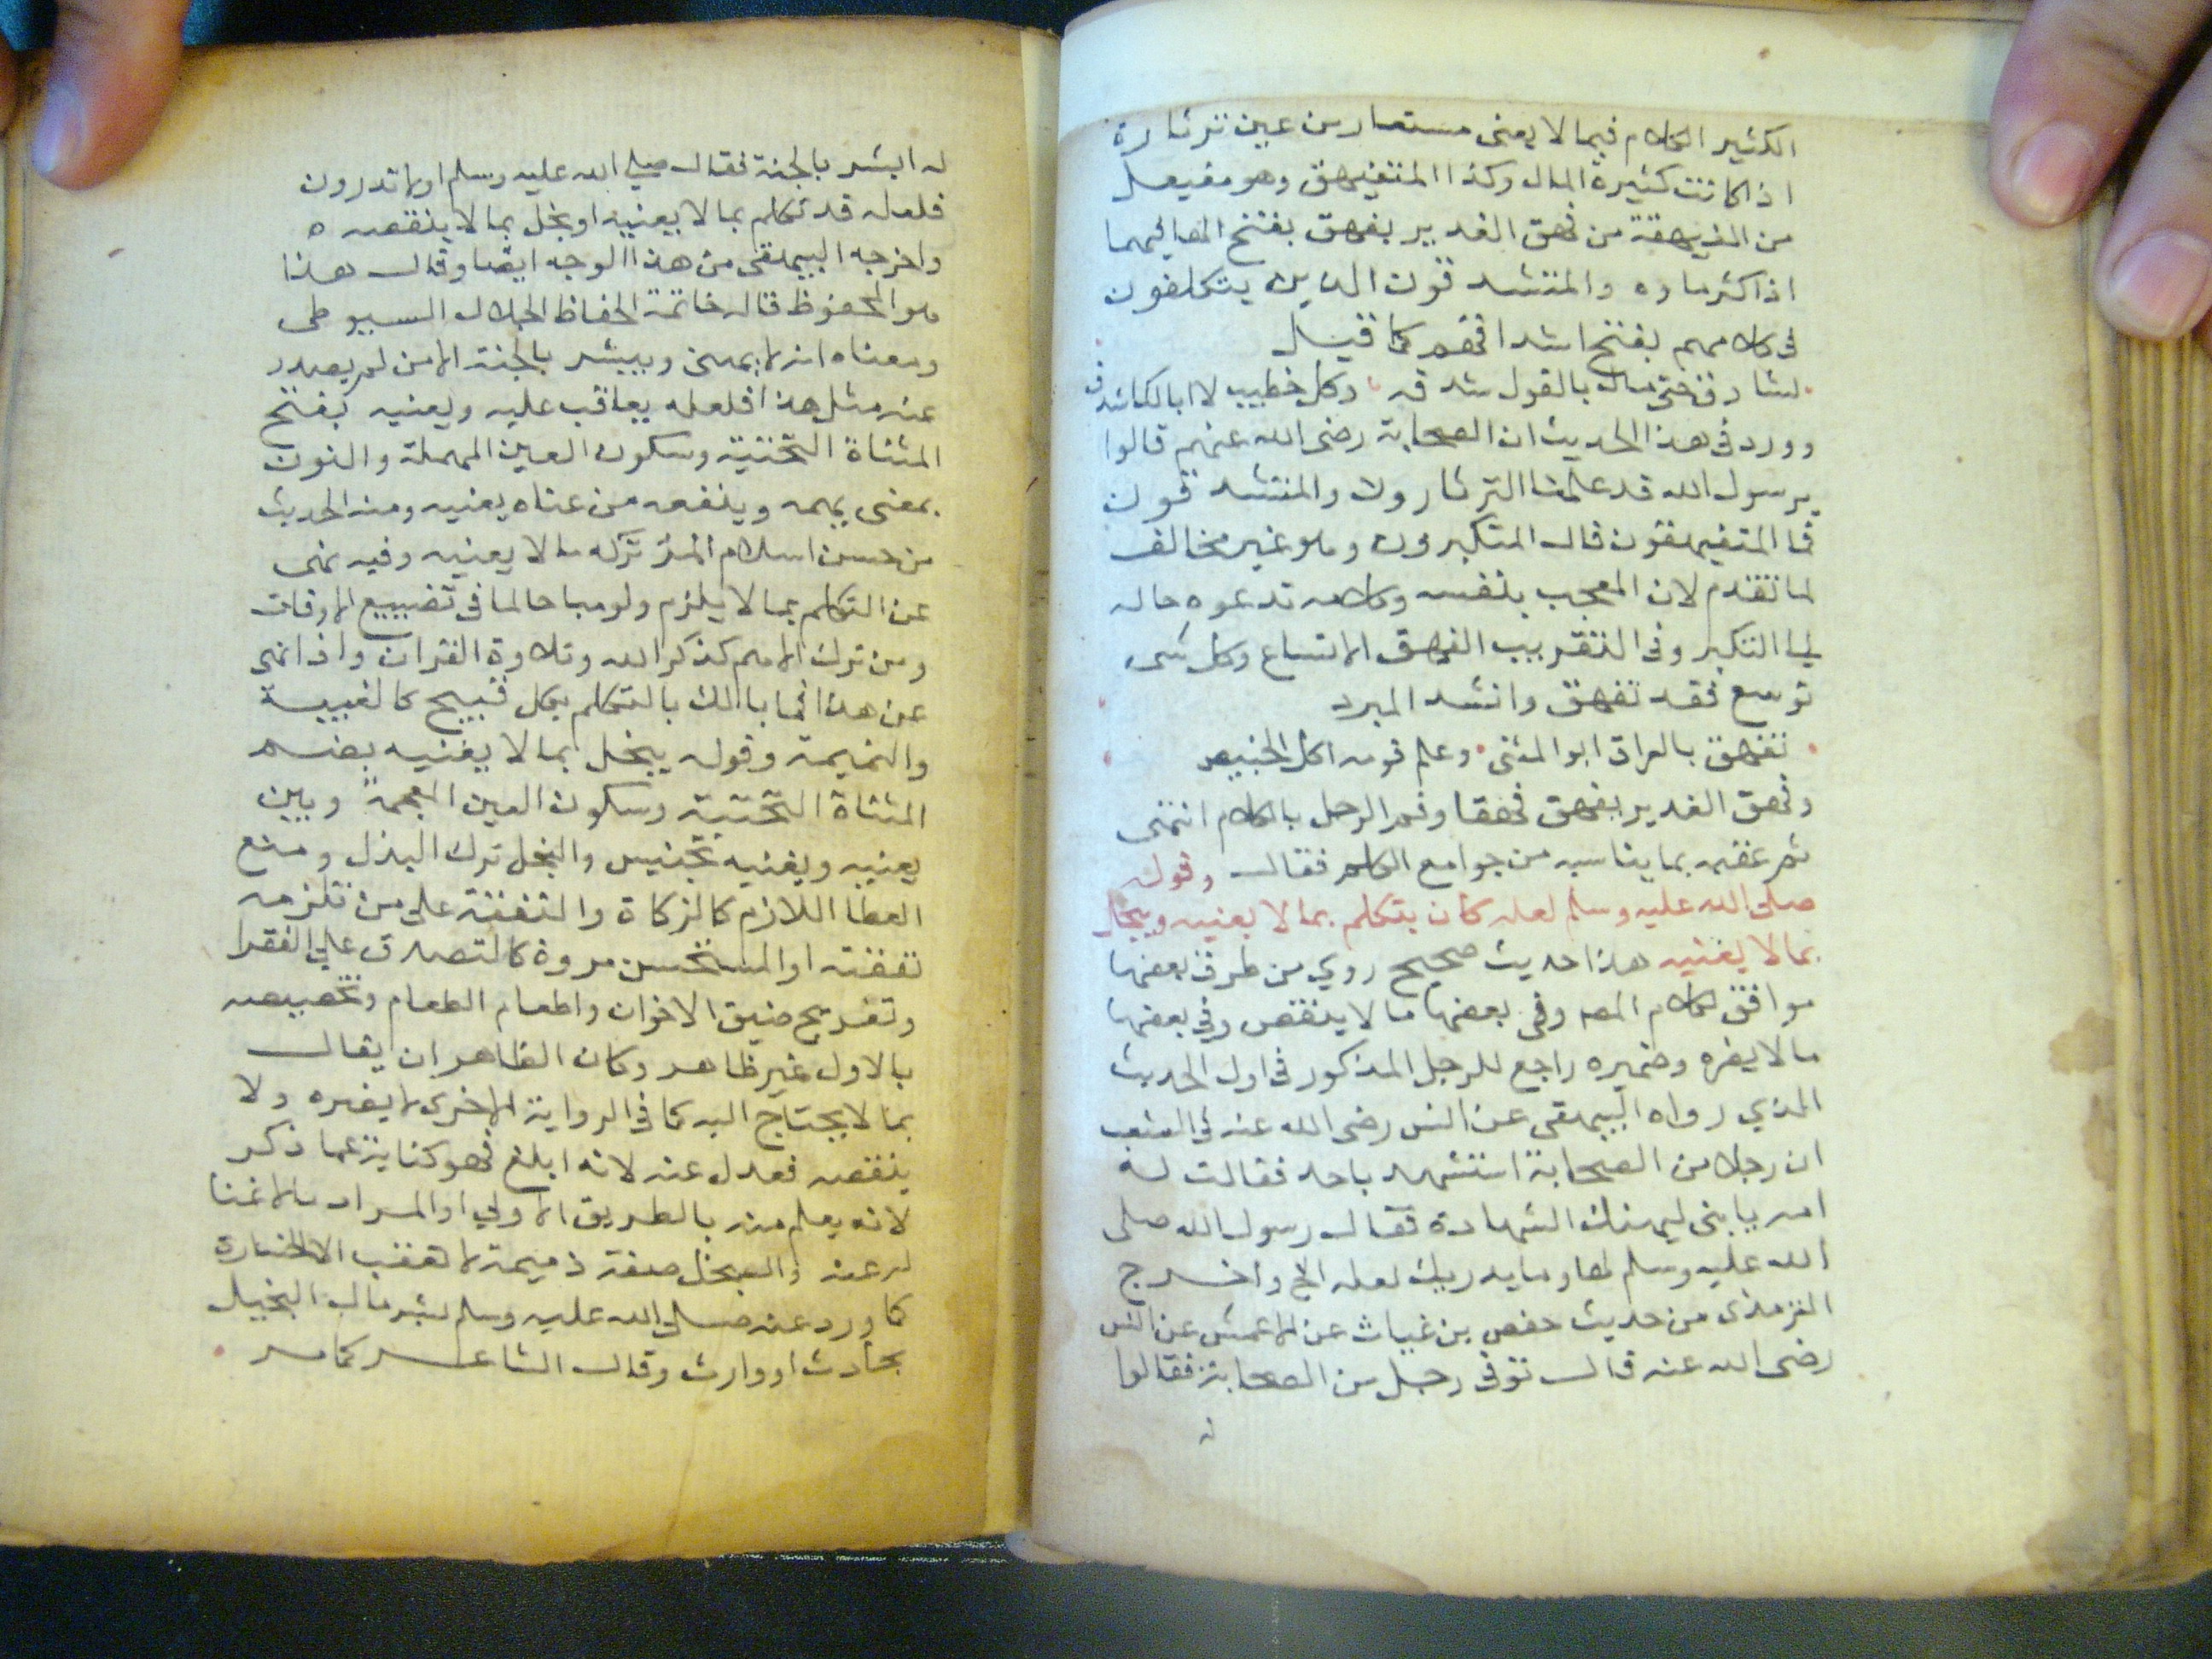 الكثير الكلام فيما لا يعنى مستعار من عين ثرثارة
اذا كانت كثيرة المال وكذا المتفيهق وهو مفيعل
من الفيهقة من فهق الغدير يفهق بفتح الهاء فيهما
اذا كثر ماوه والمتشدقون الذين يتكلفون
فى كلامهم بفتح اشداقهم كما قيل
تشادق حتى مال بالقول شدقه وكل خطيب لا ابا لك اشدق
وورد فى هذا الحديث ان الصحابة رضى الله عنهم قالوا
يرسول الله قد علمنا الثرثارون والمتشدقون
فما المتفيهقون قال المتكبرون وهو غير مخالف
لما تقدم لان المعجب بنفسه وكلامه تدعوه حاله
الى التكبر وفى التقريب الفهق الاتساع وكل شى
توسع فقد تفهق وانشد المبرد
تفهق بالعراق ابو المثنى وعلم قومه اكل الخبيص
وفهق الغدير يفهق فهقا وفم الرجل بالكلام انتهى
ثم عقبه بما يناسبه من جوامع الكلم فقال وقوله
صلى الله عليه وسلم لعله كان يتكلم بما لا يعنيه ويبخل
بما لا يغنيه هذا حديث صحيح روي من طرق بعضها
موافق لكلام المصه وفى بعضها ما لا ينقص وفى بعضها
ما لا يضره وضميره راجع للرجل المذكور فى اول الحديث
الذي رواه البيهقى عن انس رضى الله عنه فى الشعب
ان رجلا من الصحابة استشهد باحد فقالت له
امه يا بنى ليهنك الشهادة فقال رسول الله صلى
الله عليه وسلم لها وما يدريك لعله الخ واخرج
الترمذى من حديث حفص بن غياث عن الاعمش عن انس
رضى الله عنه قال توفى رجل من الصحابة فقالوا
له
له ابشر بالجنة فقال صلى الله عليه وسلم اولا تدرون
فلعله قد تكلم بما لا يعنيه او بخل بما لا ينقصه ه
واخرجه البيهقى من هذا الوجه ايضا وقال هذا
هو المحفوظ قاله خاتمة الحفاظ الجلال السيوطى
ومعناه انه لا يهنى ويبشر بالجنة الا من لم يصدر
عنه مثل هذا فلعله يعاقب عليه ويعنيه بفتح
المثناة التحتية وسكون العين المهملة والنون
بمعنى يهمه وينفعه من عناه يعنيه ومنه الحديث
من حسن اسلام المرء تركه ما لا يعنيه وفيه نهى
عن التكلم بما لا يلزم ولو مباحا لما فى تضييع الاوقات
ومن ترك الاهم كذكر الله وتلاوة القران واذا نهى
عن هذا فما بالك بالتكلم بكل قبيح كالغيبة
والنميمة وقوله يبخل بما لا يغنيه بضم
المثناة التحتية وسكون الغين المعجمة وبين
يعنيه ويغنيه تجنيس والبخل ترك البذل ومنع
العطا اللازم كالزكاة والنفقة على من تلزمه
نفقته او المستحسن مروة كالتصدق على الفقرا
وتفريح ضيق الاخوان واطعام الطعام وتخصيصه
بالاول غير ظاهر وكان الظاهر ان يقال
بما لا يحتاج اليه كما فى الرواية الاخرى لا يضره ولا
ينقصه فعدل عنه لانه ابلغ فهو كناية عما ذكر
لانه يعلم منه بالطريق الاولى او المراد ما لا غنا
له عنه والبخل صفة ذميمة لا تعقب الا الخسارة
كما ورد عنه صلى الله عليه وسلم بشر مال البخيل
بحادث او وارث وقال الشاعر كما مر